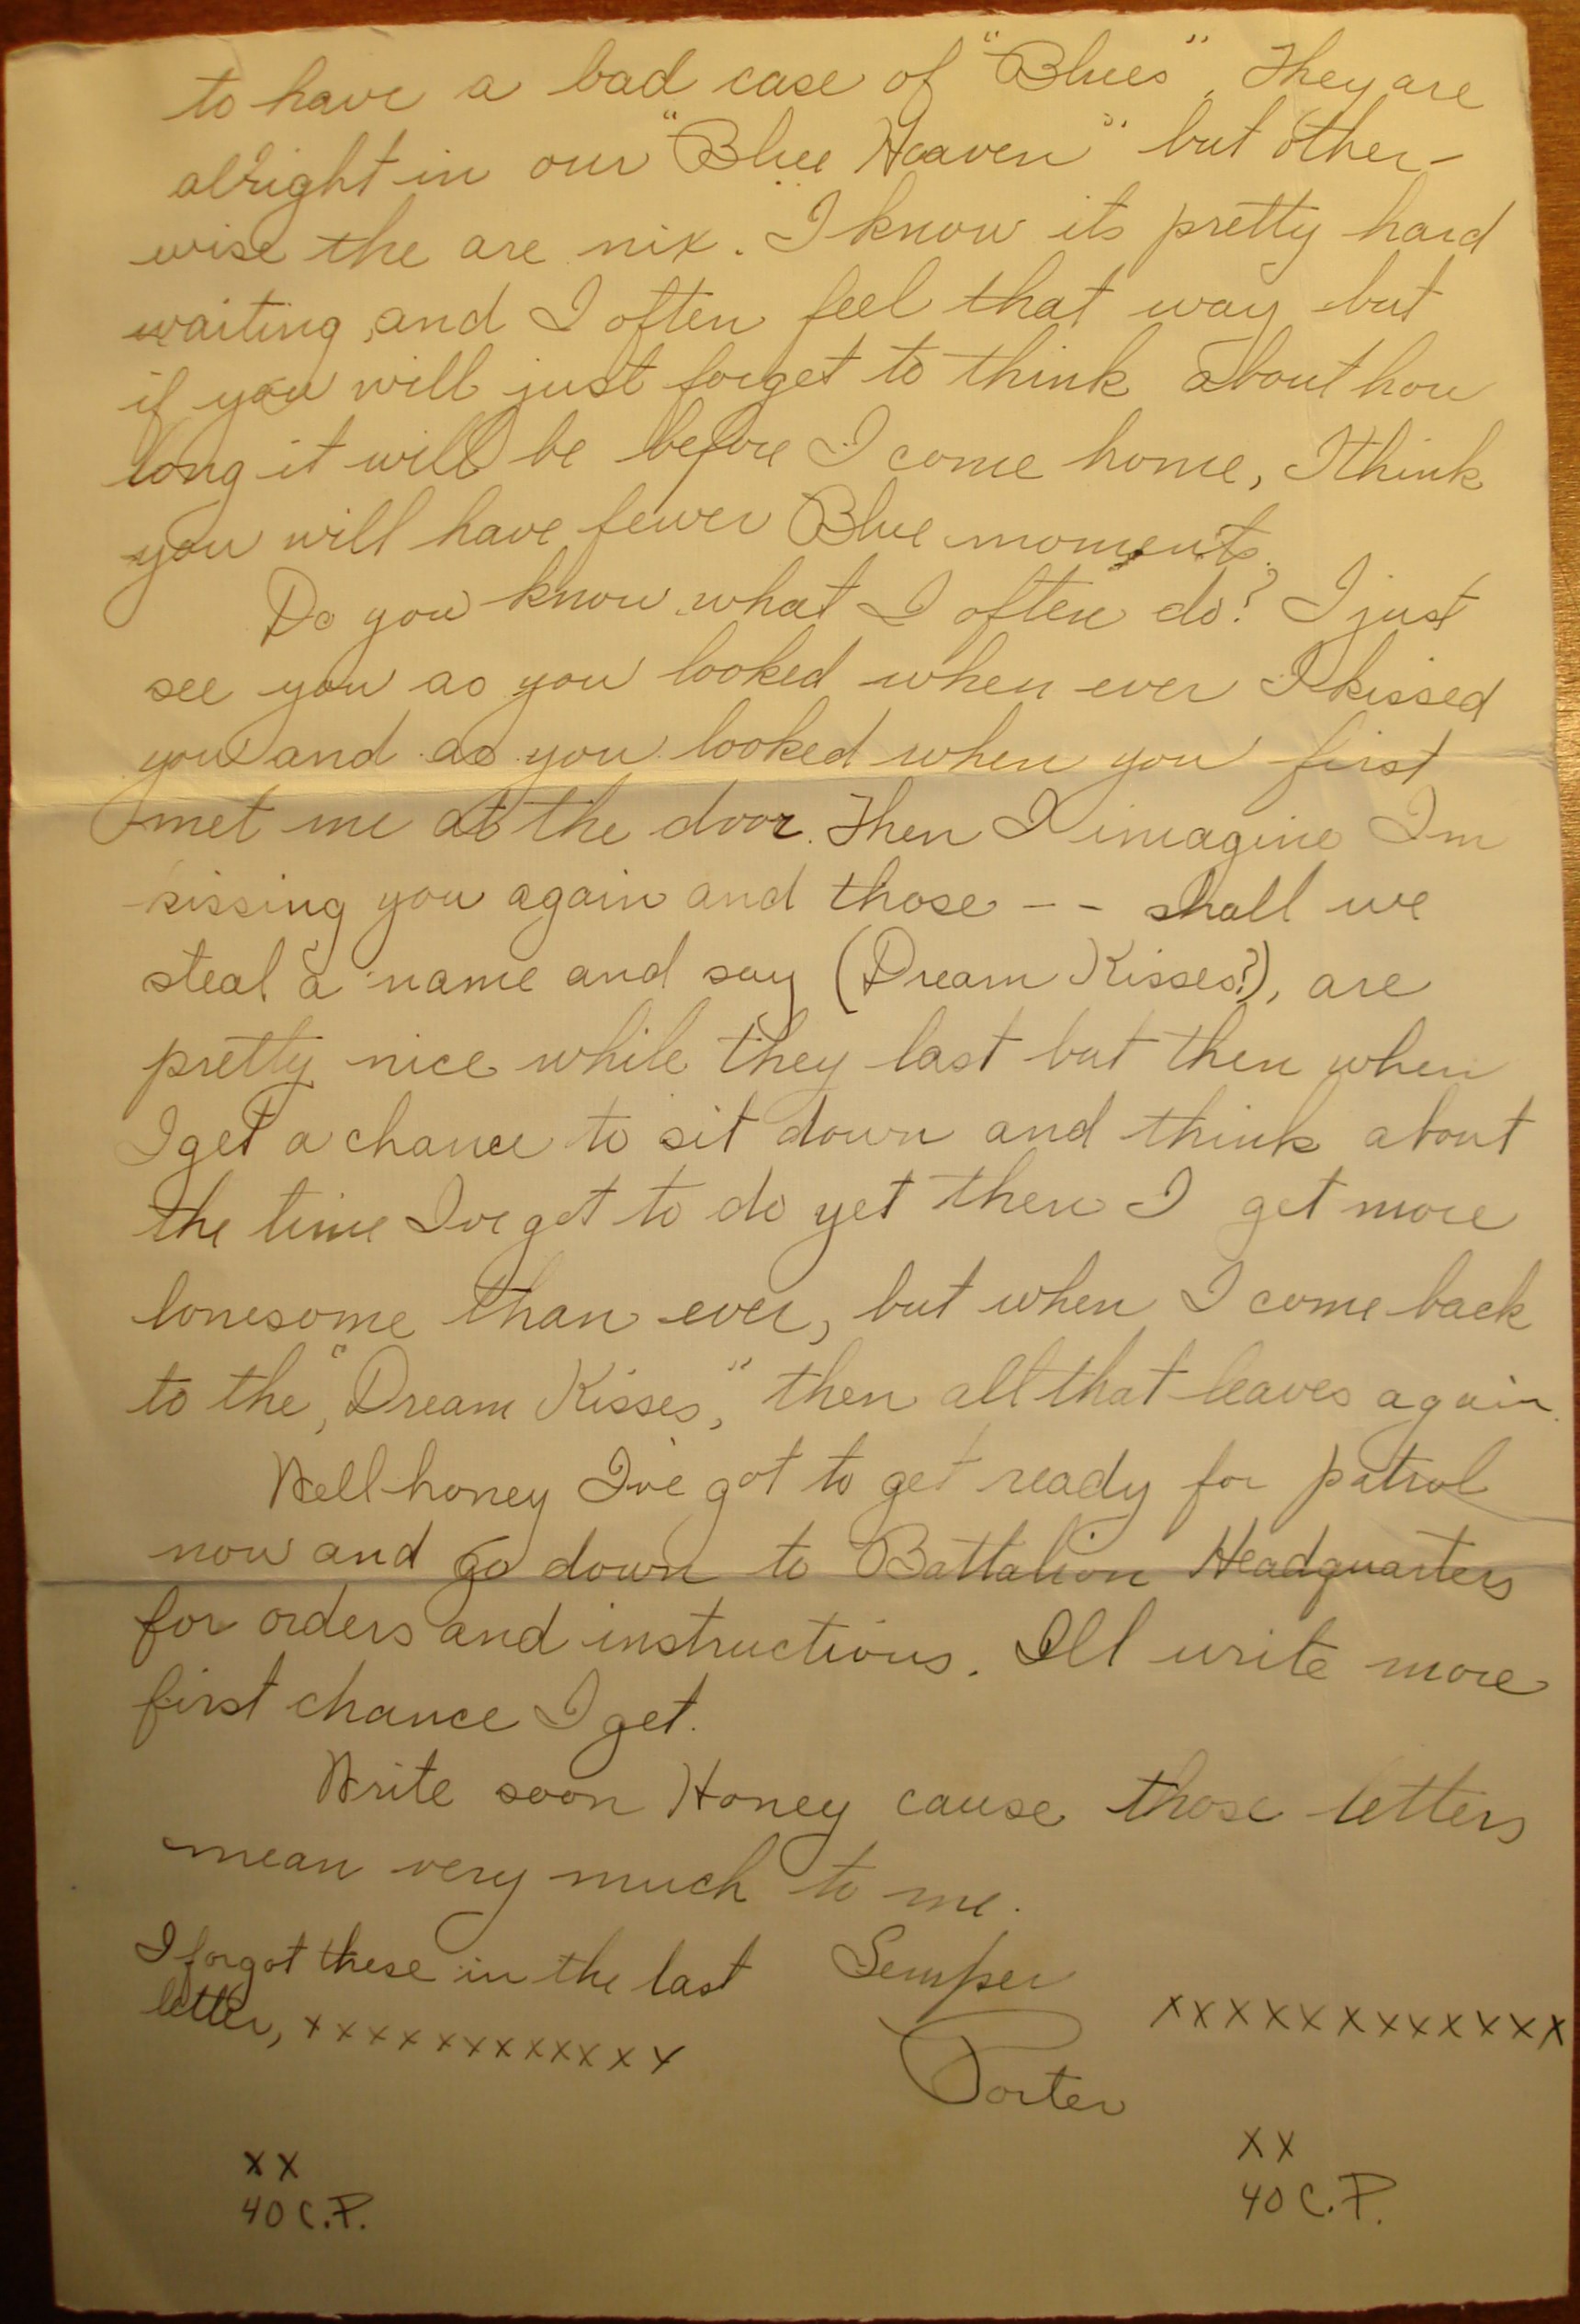 to have a bad case of "Blues". They are
alright in our "Blue Heaven" but other-
wise the are nix. I know its pretty hard
waiting, and I often feel that way but
if you will just forget to think about how
long it will be before I come home, I think
you will have fewer Blue moments.
Do you know what I often do? I just
see you as you looked when ever I kissed
you and as you looked when you first
met me at the door. Then I imagine Im
kissing you again and those -- shall we
steal a name and say (Dream Kisses?), are
pretty nice while they last but then when
I get a chance to sit down and think about
the time Ive got to do yet then I get more
lonesome than ever, but when I come back
to the, "Dream Kisses," then all that leaves again.
Well honey I've got to get ready for patrol
now and go down to Battalion Headquarters
for orders and instructions. Ill write more
first chance I get.
Write soon Honey cause those letters
mean very much to me.
I forgot these in the last
letter, xxxxxxxxxxxxx
Semper
Porter
xxxxxxxxxxxxx
xx
40 C.P.
xx
40 C.P.